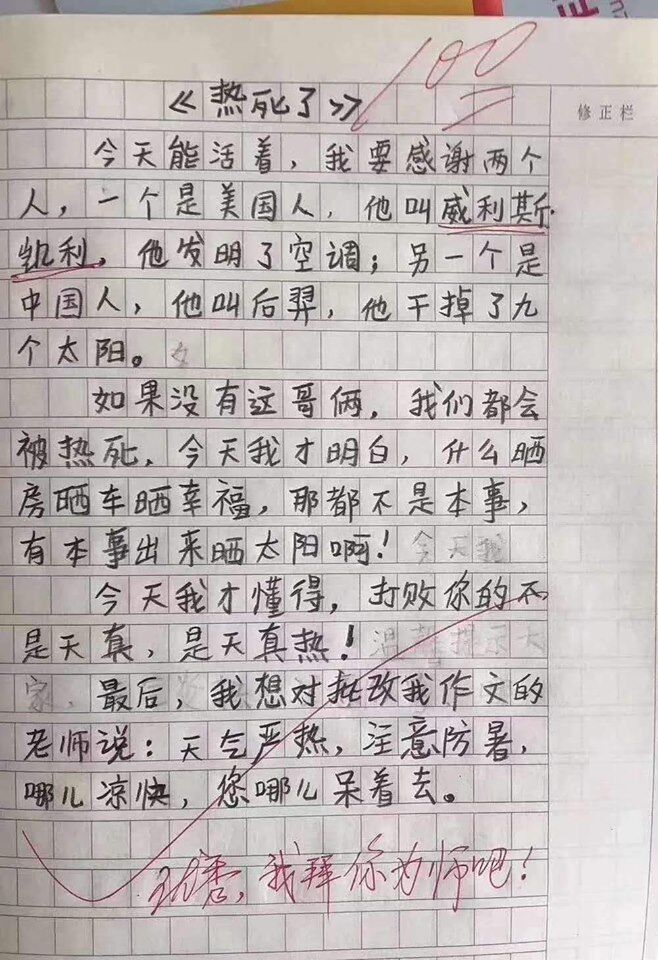 100
《热死了》
修正栏
今天能活着，我要感谢两个
人，一个是美国人，他叫威利斯
凯利，他发明了空调；另一个是
中国人，他叫后羿，他干掉了九
个太阳。
如果没有这哥俩，我们都会
被热死，今天我才明白，什么晒
房晒车晒幸福，那都不是本事，
有本事出来晒太阳啊！今天我
今天我才懂得，打败你的不
是天真，是天真热！温馨提示大
家，最后，我想对批改我作文的
老师说：天气严热，注意防暑，
哪儿凉快，您哪儿呆着去。
我拜你为师吧！